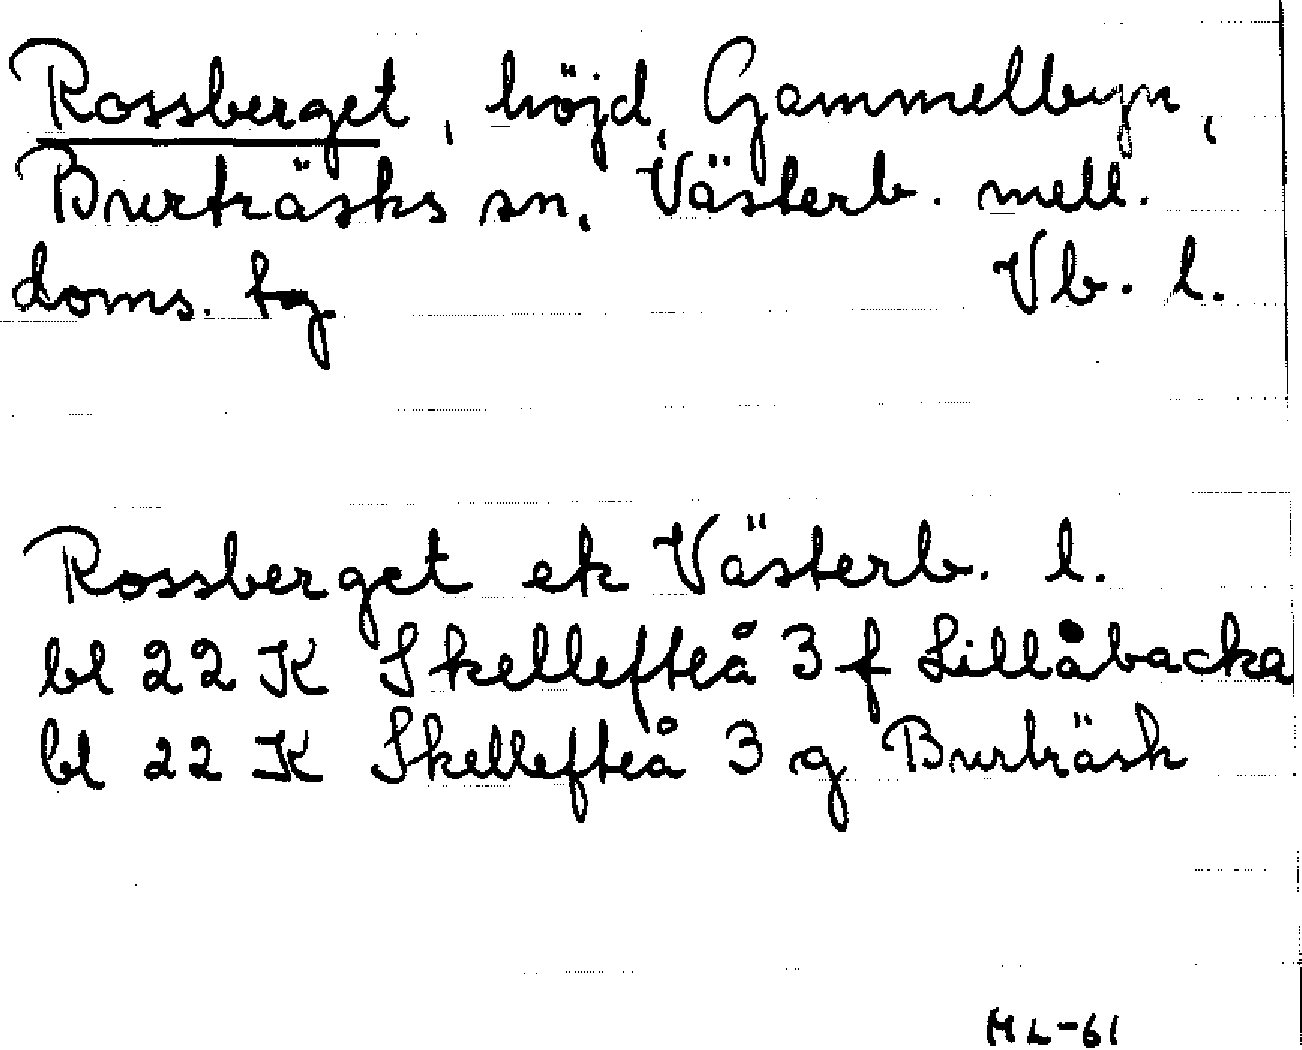 Rossberget, höjd, Gammelbyn,
Burträsks sn, Västerb. mell.
doms. tg Vb. l.
Rossberget ek Västerb. l.
bl 22 K Skellefteå 3 f Lillåbacka
bl 22 K Skellefteå 3 g Burträsk
ML-61